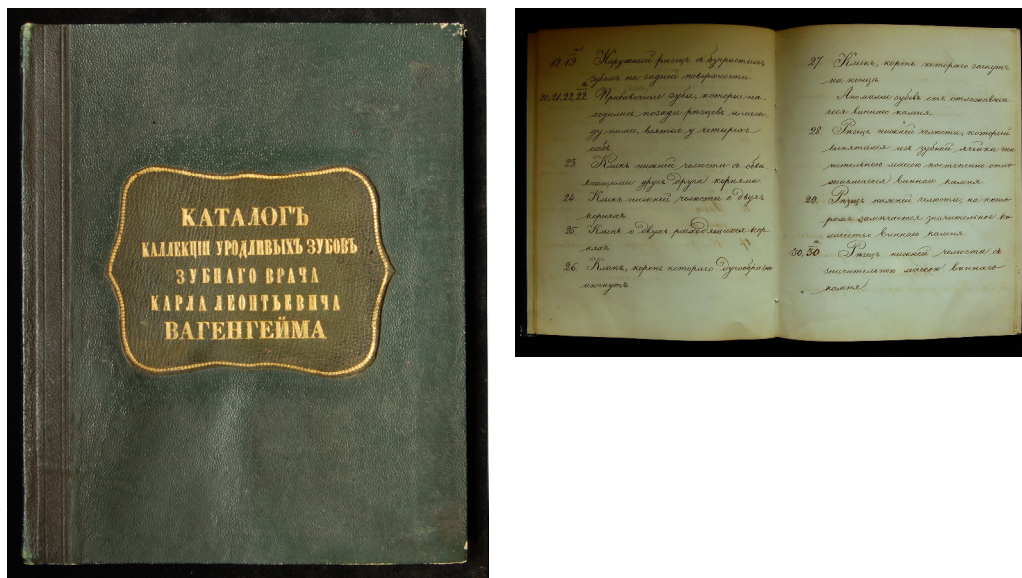 КАТАЛОГЪ
КАЛЛЕКЦІИ УРОДЛИВЫХЪ ЗУБОВЪ
ЗУБНАГО ВРАЧА
КАРЛА ЛЕОНТЬЕВИЧА
ВАГЕНГЕЙМА
18.19 Наружний рѣзецъ съ бугристымъ
зубомъ на задней поверхности.
20, 21, 22, 22 Прибавочные зубы, которые на-
ходились позади рѣзцовъ и меж-
ду ними, взятые у четырехъ
23. Клыкъ нижней челюсти съ обви-
вающими другъ друга корнями.
24. Клыкъ нижней челюсти о двухъ
корняхъ
25. Клыкъ о двухъ расходящихся кор-
няхъ
26. Клыкъ, корень котораго дугообразно
изогнутъ
27. Клыкъ, корень котораго загнутъ
на концѣ
Аномаліи зубовъ отъ отлежавша-
гося виннаго камня.
28. Рѣзецъ нижней челюсти, который
выпятился изъ зубной ячейки зна-
чительною массою постепенно отло-
жившагося виннаго камня.
29. Рѣзецъ нижней челюсти, на кото-
ромъ замѣчается значительное ко-
личество виннаго камня
30, 30 Рѣзецъ нижней челюсти съ
значительною массою виннаго
камня